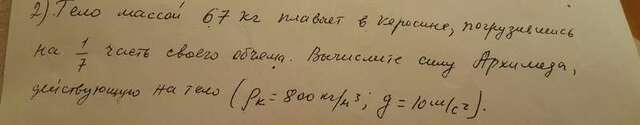 2). Тело массой 67 кг плавает в керосине, погрузившись
на 1/7 часть своего объема. Вычислите силу Архимеда,
действующую на тело (ρк = 800 кг/м³; g = 10 м/с²).